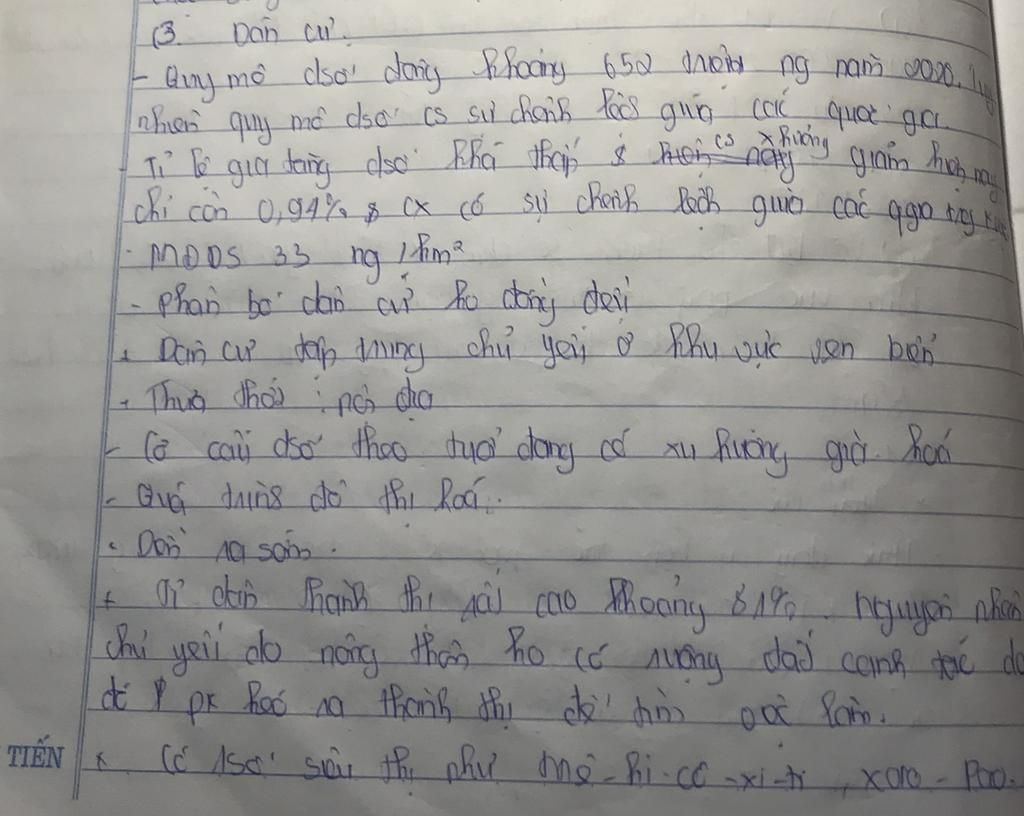 3. Dân cư.
- Quy mô dsố đông khoảng 652 triệu ng năm 2020. Tuy
nhiên quy mô dsố cs sự chênh lệch giữa các quốc gia
Tỉ lệ gia tăng dsố khá thấp & cs xhướng giảm hiện nay
chỉ còn 0,94% & cx có sự chênh lệch giữa các qgia trg
- MĐDS 33 ng/km²
- Phân bố dân cư ko đồng đều
+ Dân cư tập trung chủ yếu ở khu vực ven biển
+ Thưa thớt: nội địa
- Cơ cấu dsố theo tuổi đang có xu hướng già hoá
- Quá trình đô thị hoá.
. Diễn ra sớm.
+ Tỉ dân thành thị rất cao khoảng 81%. Nguyên nhân
chủ yếu do nông thôn ko có ruộng đất canh tác
đi ra thành thị để tìm việc làm.
TIẾN + Có 1 số siêu thị như Mê-hi-cô-xi-ti, Xao-Pao-